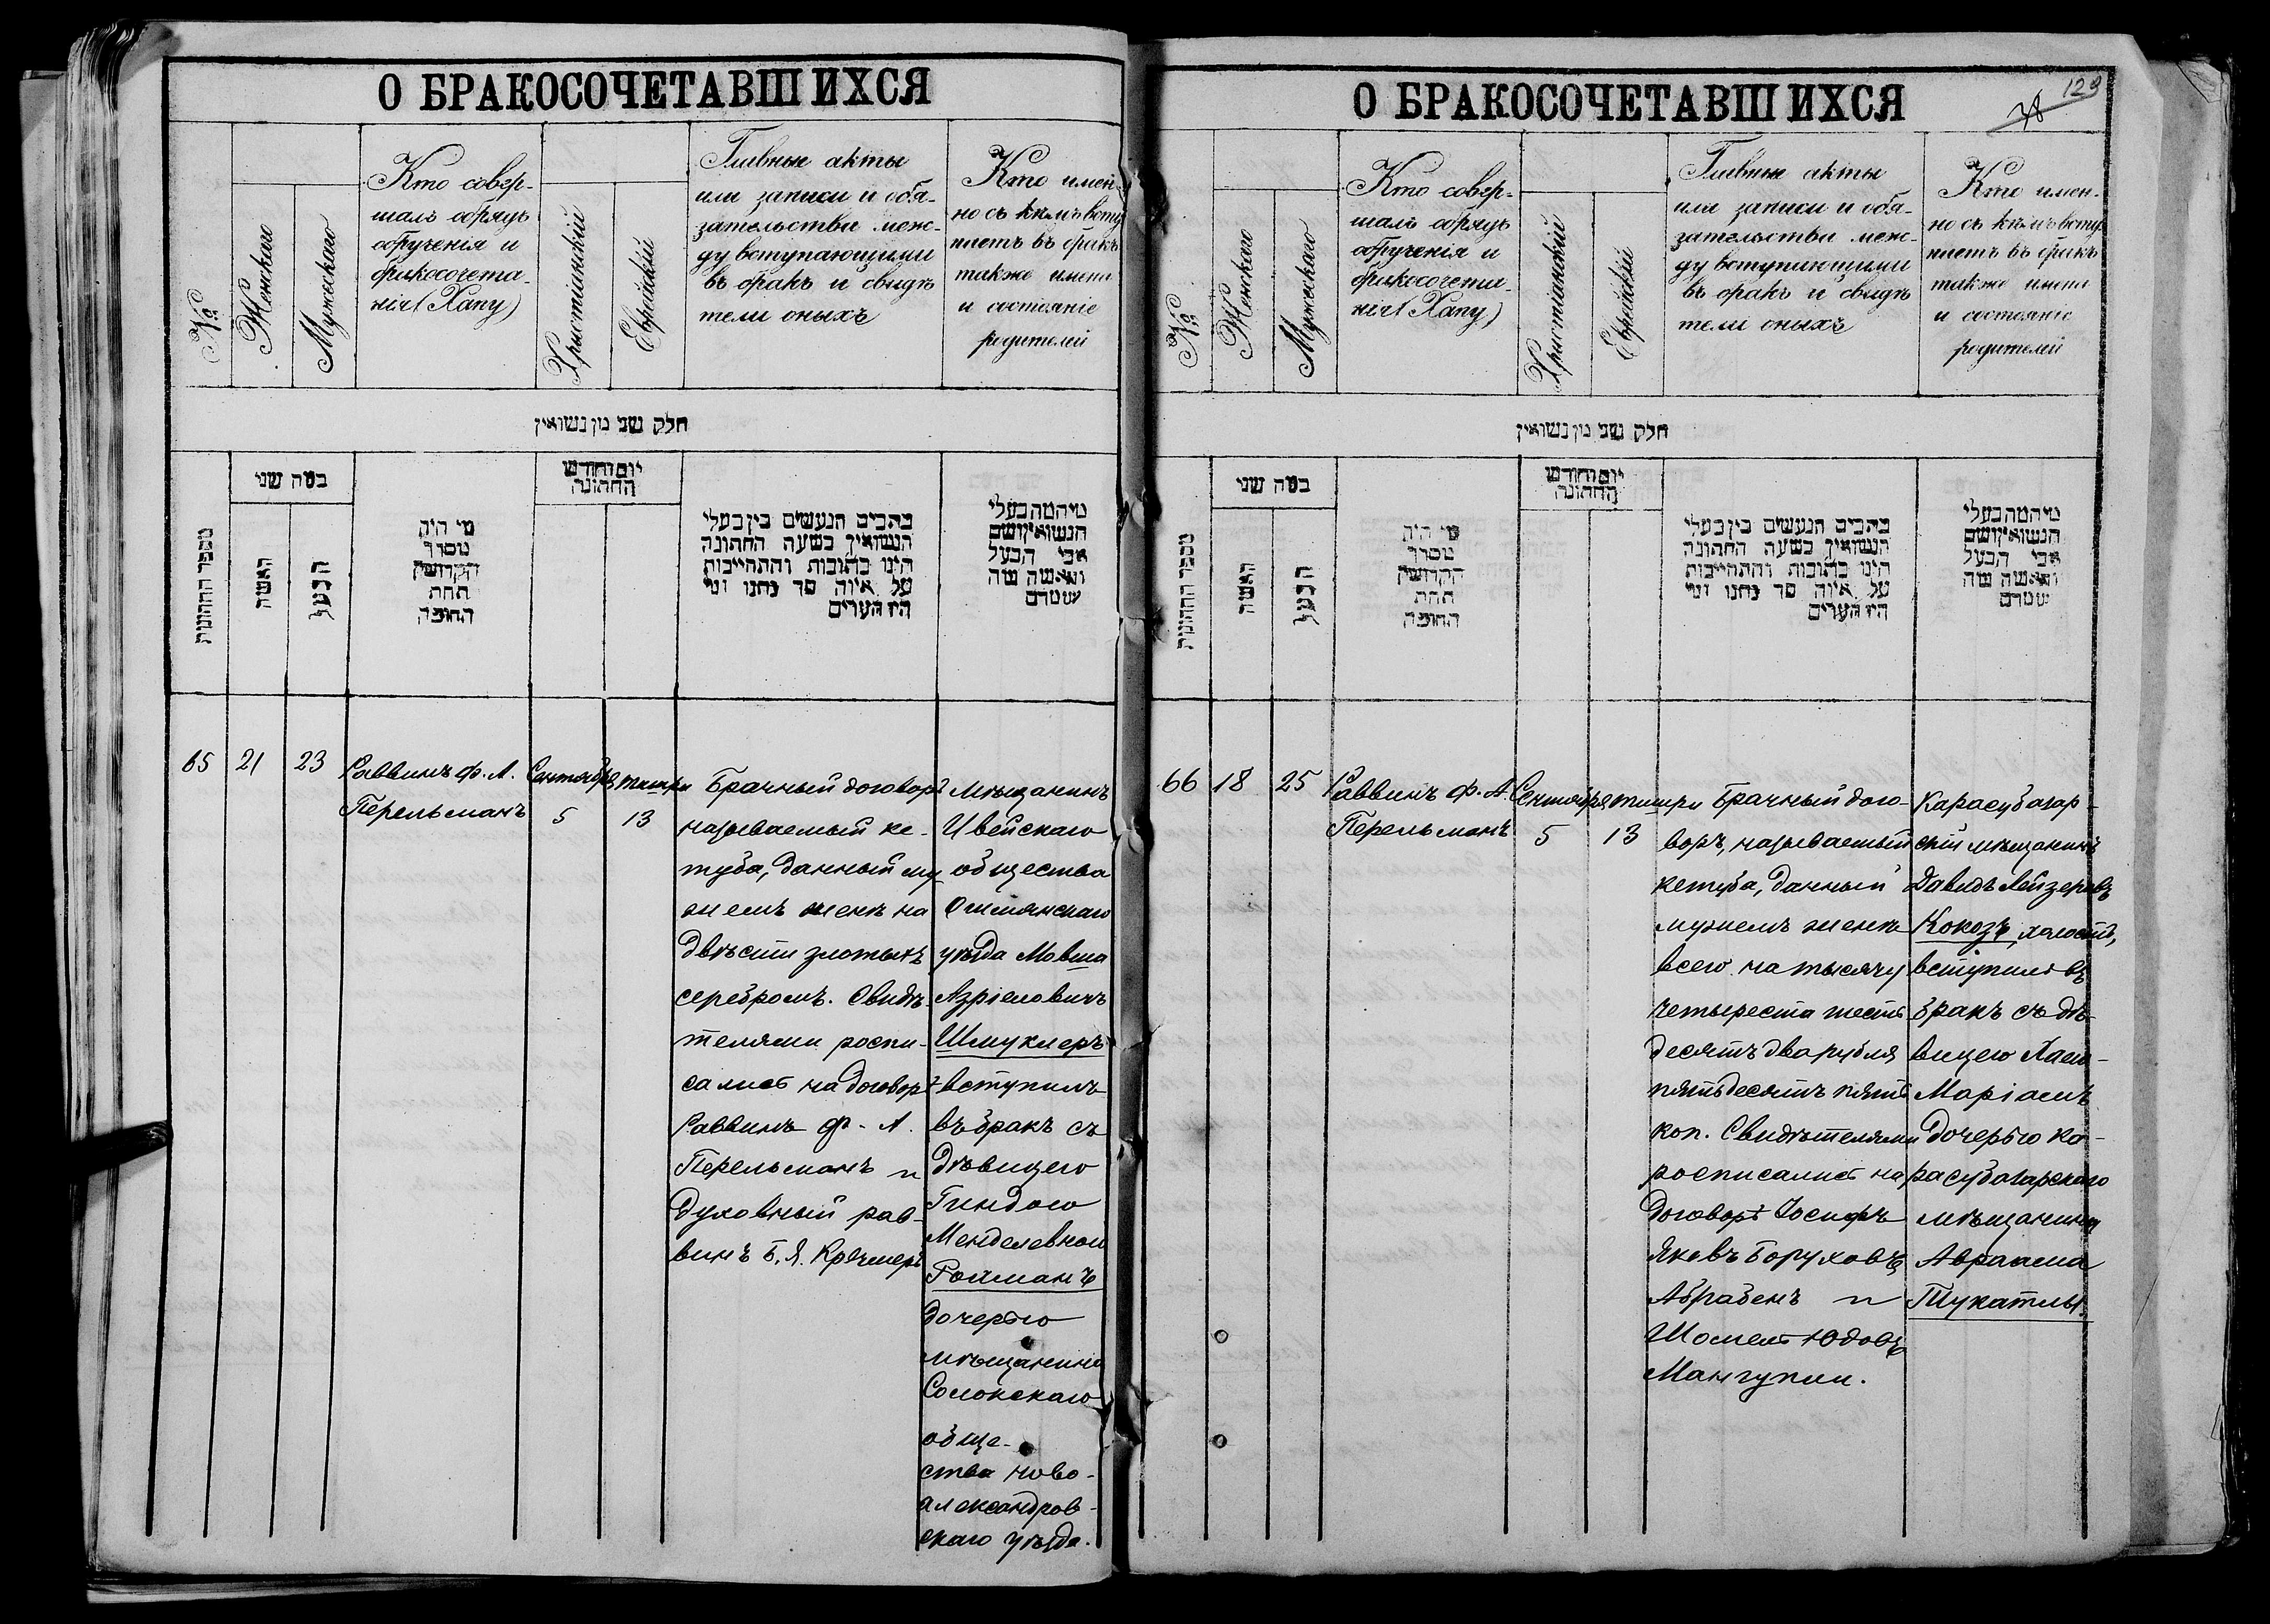 О БРАКОСОЧЕТАВШИХСЯ
№
Женскаго
Мужескаго
Кто совер-
шалъ обрядъ
обрученія и
бракосочета-
нія (Хапу)
Христіанскій
Еврейскій
Главные акты
или записи и обя-
зательства меж-
ду вступающими
въ бракъ и свидѣ
тели оныхъ
Кто имен-
но съ кѣмъ всту
паетъ въ бракъ
также имена
и состояніе
родителей
חלק שני מן נשואין
מספר החתונות
כמה שני
האשה
הבעל
מי היה
מסדר
הקדושין
תחת
החופה
יום וחודש
החתונה
כתבים הנעשים בין בעלי
הנשואין בשעה החתונה
היינו כתובות והתחייבות
על איזה סך נתנו ומי
היו העדים
מי המה בעלי
הנשואין ושם
אבי הבעל
והאשה מה
שמרם
65
21
23
Раввинъ Ф. А.
Перельманъ
Сентября
5
тишри
13
Брачный договоръ
называемый ке-
туба, данный му
жемъ женѣ на
двѣсти злотыхъ
серебромъ. Свидѣ-
телями роспи-
сались на договорѣ
Раввинъ Ф. А.
Перельманъ и
духовный рав-
винъ Б. Я. Кречмеръ
Мѣщанинъ
Ивейскаго
общества
Ошмянскаго
уѣзда Мовша
Азріеловичъ
Шмуклеръ
вступилъ
въ бракъ съ
дѣвицею
Гиндою
Менделевною
Гойманъ
дочерью
мѣщанина
Солокскаго
обще-
ства ново-
александров-
скаго уѣзда.
О БРАКОСОЧЕТАВШИХСЯ
129
№
Женскаго
Мужескаго
Кто совер-
шалъ обрядъ
обрученія и
бракосочета-
нія (Хапу)
Христіанскій
Еврейскій
Главные акты
или записи и обя-
зательства меж-
ду вступающими
въ бракъ и свидѣ
тели оныхъ
Кто имен-
но съ кѣмъ всту
паетъ въ бракъ
также имена
и состояніе
родителей
חלק שני מן נשואין
מספר החתונות
כמה שני
האשה
הבעל
מי היה
מסדר
הקדושין
תחת
החופה
יום וחודש
החתונה
כתבים הנעשים בין בעלי
הנשואין בשעה החתונה
היינו כתובות והתחייבות
על איזה סך נתנו ומי
היו העדים
מי המה בעלי
הנשואין ושם
אבי הבעל
והאשה מה
שמרם
66
18
25
Раввинъ Ф. А.
Перельманъ
Сентября
5
тишри
13
Брачный дого-
воръ, называемый
кетуба, данный
мужемъ женѣ
всего на тысячу
четыреста шесть
десятъ два рубля
пятьдесятъ пять
коп. Свидѣтелями
росписались на
договорѣ Іосифъ
Яковъ Боруховъ
Абрабенъ и
Шомель Юдовъ
Мангупли.
Карасубазар-
скій мѣщанинъ
Давидъ Лейзеровъ
Кокозъ, холостъ,
вступилъ въ
бракъ съ дѣ-
вицею
Маріамъ
дочерью ка-
расубазарскаго
мѣщанина
Авраама
Тукатлы.